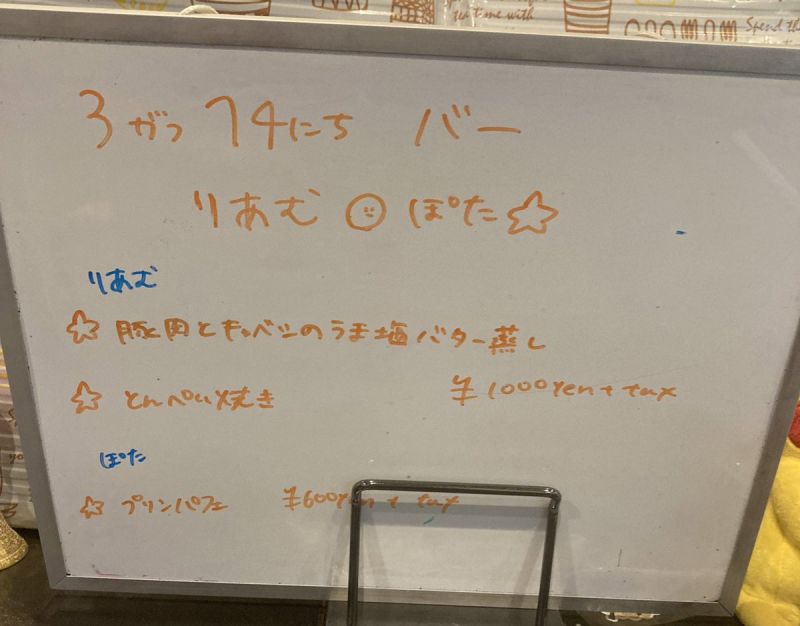 tea time with
Spend th
3がつ14にち バー
りあむ ぽた☆
りあむ
☆ 豚肉とキャベツのうま塩バター蒸し
☆ とんぺい焼き ¥1000yen + tax
ぽた
☆ プリンパフェ ¥600yen + tax